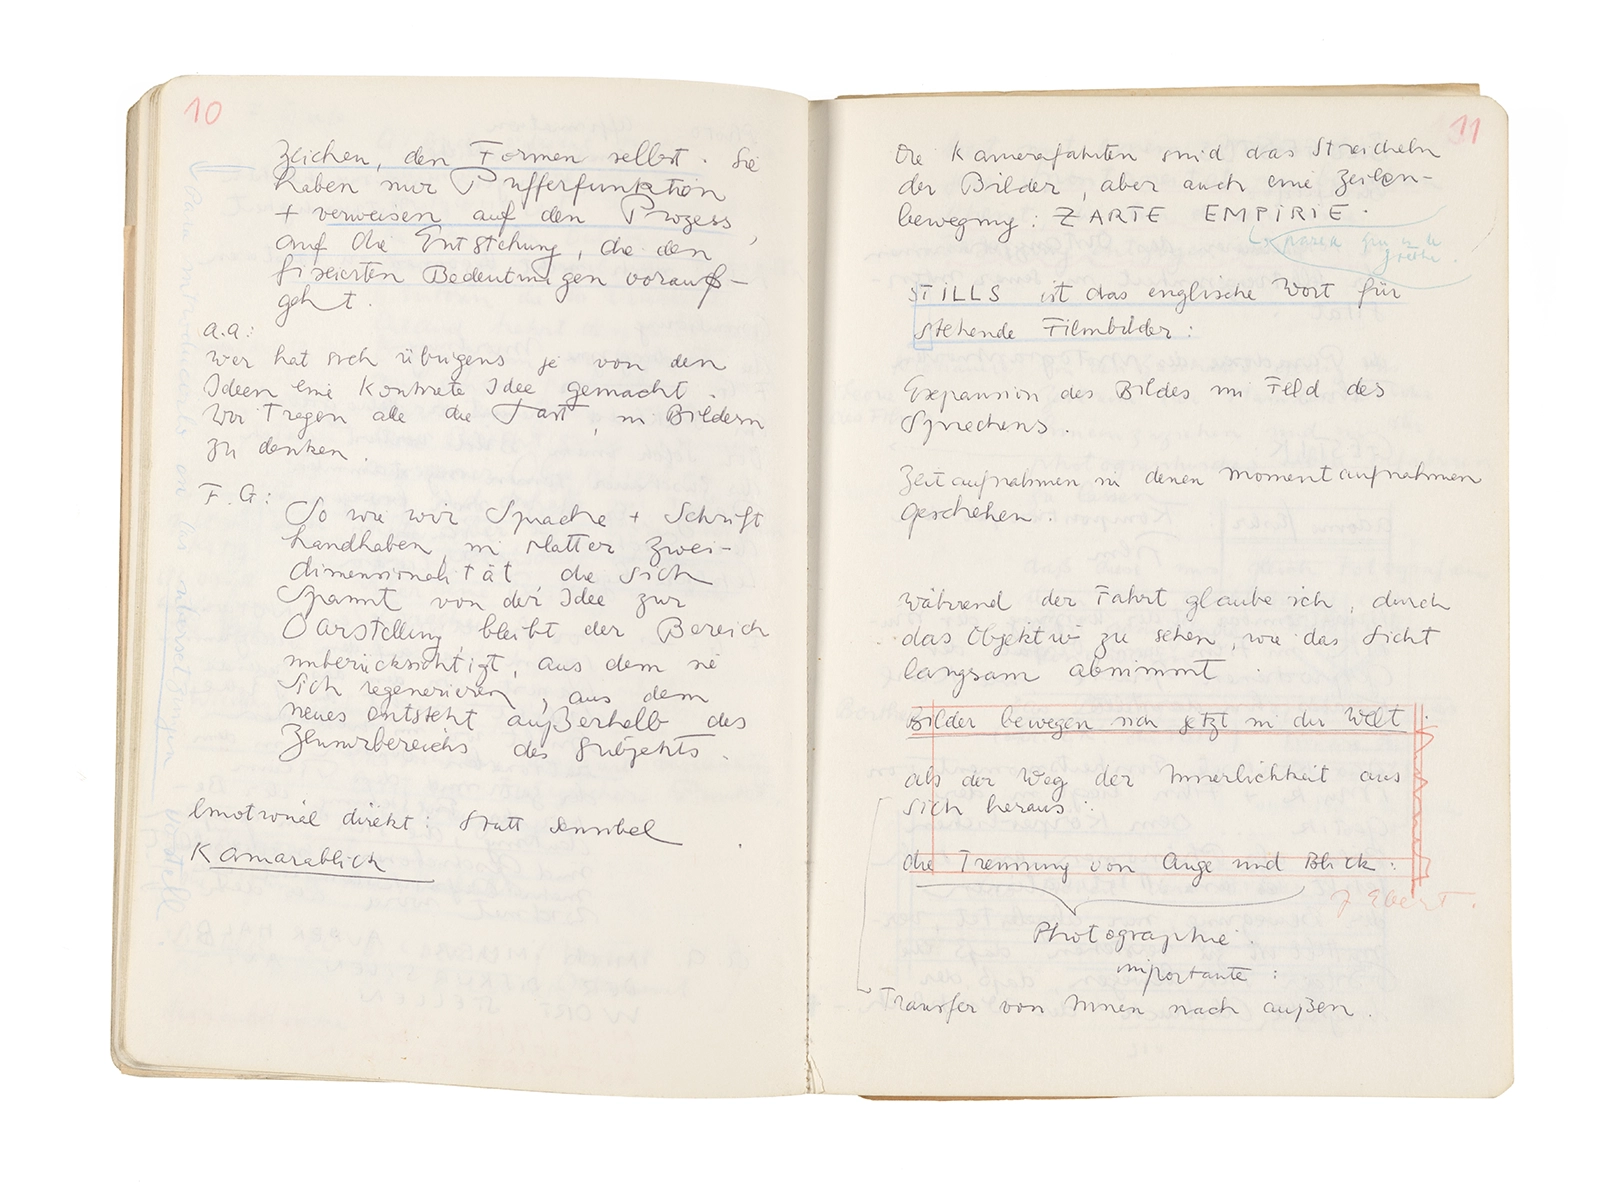 10
Zeichen, den Formen selbst. Sie
haben nur Pufferfunktion
+ verweisen auf den Prozess,
auf die Entstehung, die den
fixierten Bedeutungen vorauf-
geht.
a.a:
wer hat sich übrigens je von den
Ideen eine konkrete Idee gemacht.
Wir tragen alle die Last, in Bildern
zu denken.
F. G:
So wie wir Sprache + Schrift
handhaben, in platter Zwei-
dimensionalität, die sich
spannt von der Idee zur
Darstellung, bleibt der Bereich
unberücksichtigt, aus dem sie
sich regenerieren, aus dem
neues entsteht außerhalb des
Zensurbereichs des Subjekts.
emotional direkt: statt sensibel.
Kamarablick
11
Die Kamerafahrten sind das Streicheln
der Bilder, aber auch eine Zeilen-
bewegung: ZARTE EMPIRIE.
STILLS ist das englische Wort für
stehende Filmbilder:
Expansion des Bildes im Feld des
Sprechens.
Zeitaufnahmen in denen Momentaufnahmen
geschehen.
Während der Fahrt glaube ich, durch
das Objektiv zu sehen, wie das Licht
langsam abnimmt.
Bilder bewegen sich jetzt in der Welt.
als der Weg der Innerlichkeit aus
sich heraus:
die Trennung von Auge und Blick:
J Ebert.
Photographie.
importante:
Transfer von Innen nach außen.